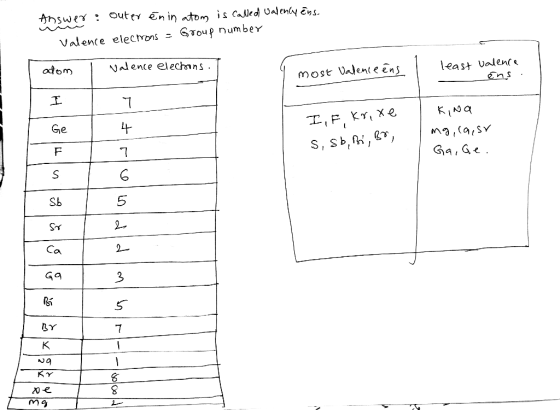 Answer : outer ēn in atom is called valency ēns.
Valence electrons = Group number
atom Valence electrons.
I 7
Ge 4
F 7
S 6
Sb 5
Sr 2
Ca 2
Ga 3
Bi 5
Br 7
K 1
Na 1
Kr 8
Xe 8
Mg 2
most Valence ēns
I, F, Kr, Xe
S, Sb, Bi, Br,
least Valence
ēns.
K, Na
Mg, Ca, Sr
Ga, Ge.